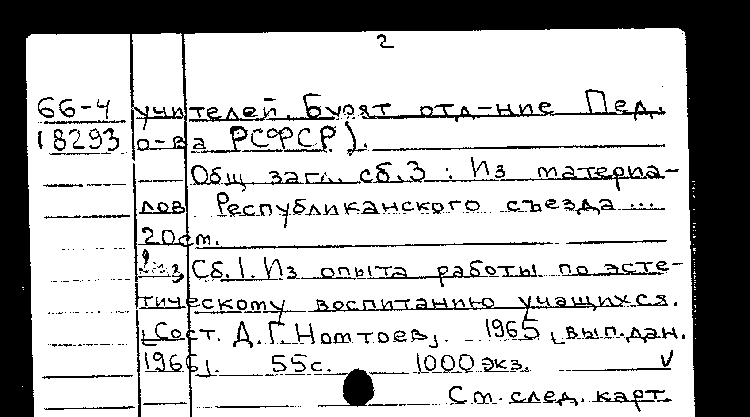 2
66-4 учителей. Бурят отд-ние Пед.
18293 о-ва РСФСР).
Общ загл. сб.3 : Из материа-
лов Республиканского съезда ...
20см.
Сб.1. Из опыта работы по эсте-
тическому воспитанию учащихся.
[Сост. Д.Г. Номтоев]. 1965 [вып.дан.
1966]. 55с. 1000 экз. V
См. след. карт.